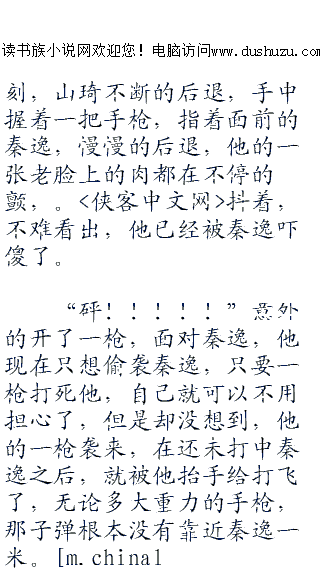 读书族小说网欢迎您！电脑访问www.dushuzu.com
刻，山琦不断的后退，手中
握着一把手枪，指着面前的
秦逸，慢慢的后退，他的一
张老脸上的肉都在不停的
颤，。<侠客中文网>抖着，
不难看出，他已经被秦逸吓
傻了。
“砰！！！！！”意外
的开了一枪，面对秦逸，他
现在只想偷袭秦逸，只要一
枪打死他，自己就可以不用
担心了，但是却没想到，他
的一枪袭来，在还未打中秦
逸之后，就被他抬手给打飞
了，无论多大重力的手枪，
那子弹根本没有靠近秦逸一
米。[m.china1